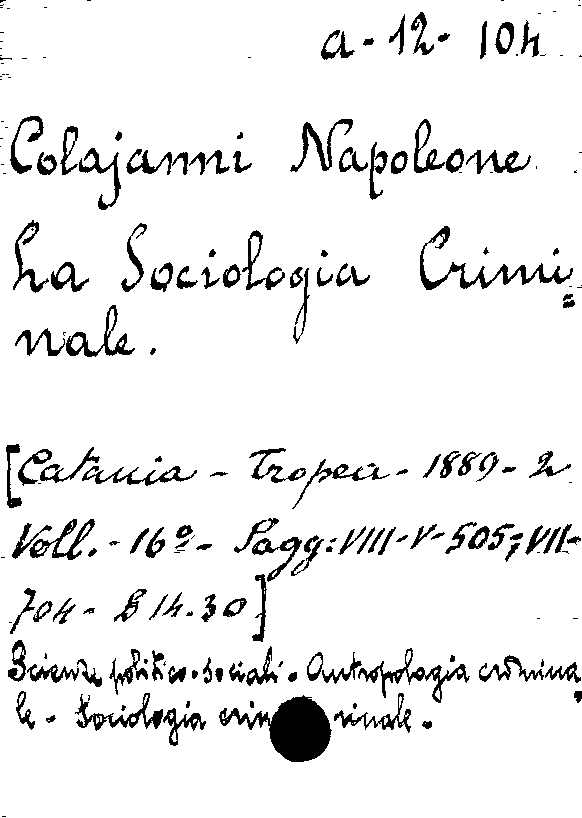 a-12-104
Colajanni Napoleone
La Sociologia Crimi=
nale.
[Catania - Tropea - 1889 - 2
Voll. - 16º - Pagg: VIII-V-505; VII-
704 - L 14.30]
Scienze politico-sociali - Antropologia crimina
le - Sociologia crim inale -